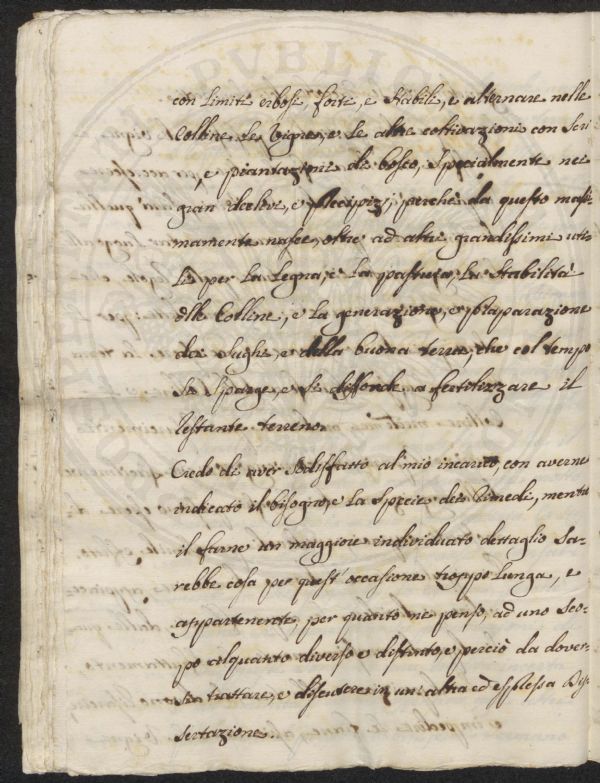 con limiti erbosi, forti, e stabili, e alternare nelle
Colline le Vigne, e le altre coltivazioni con Seri
, e piantazioni di bosco, Specialmente nei
gran declivi, e precipizj; perchè da questo massi
mamente nasce, oltre ad altri grandissimi uti-
li per la legna, e la pastura, la stabilità
dlle Colline, e la generazione, e preparazione
dei sughi, e della buona terra, che col tempo
si sparge, e si diffonde a fertilizzare il
restante terreno.
Credo di aver sodisfatto al mio incarico, con averne
indicato il bisogno, e la specie dei rimedi, mentre
il farne un maggiore individuato dettaglio sa-
rebbe cosa per quest'occasione troppo lunga, e
appartenente, per quanto ne penso, ad uno sco-
po alquanto diverso e distinto, e perciò da dover-
si trattare, e discutere in un'altra ed espressa Dis
sertazione.